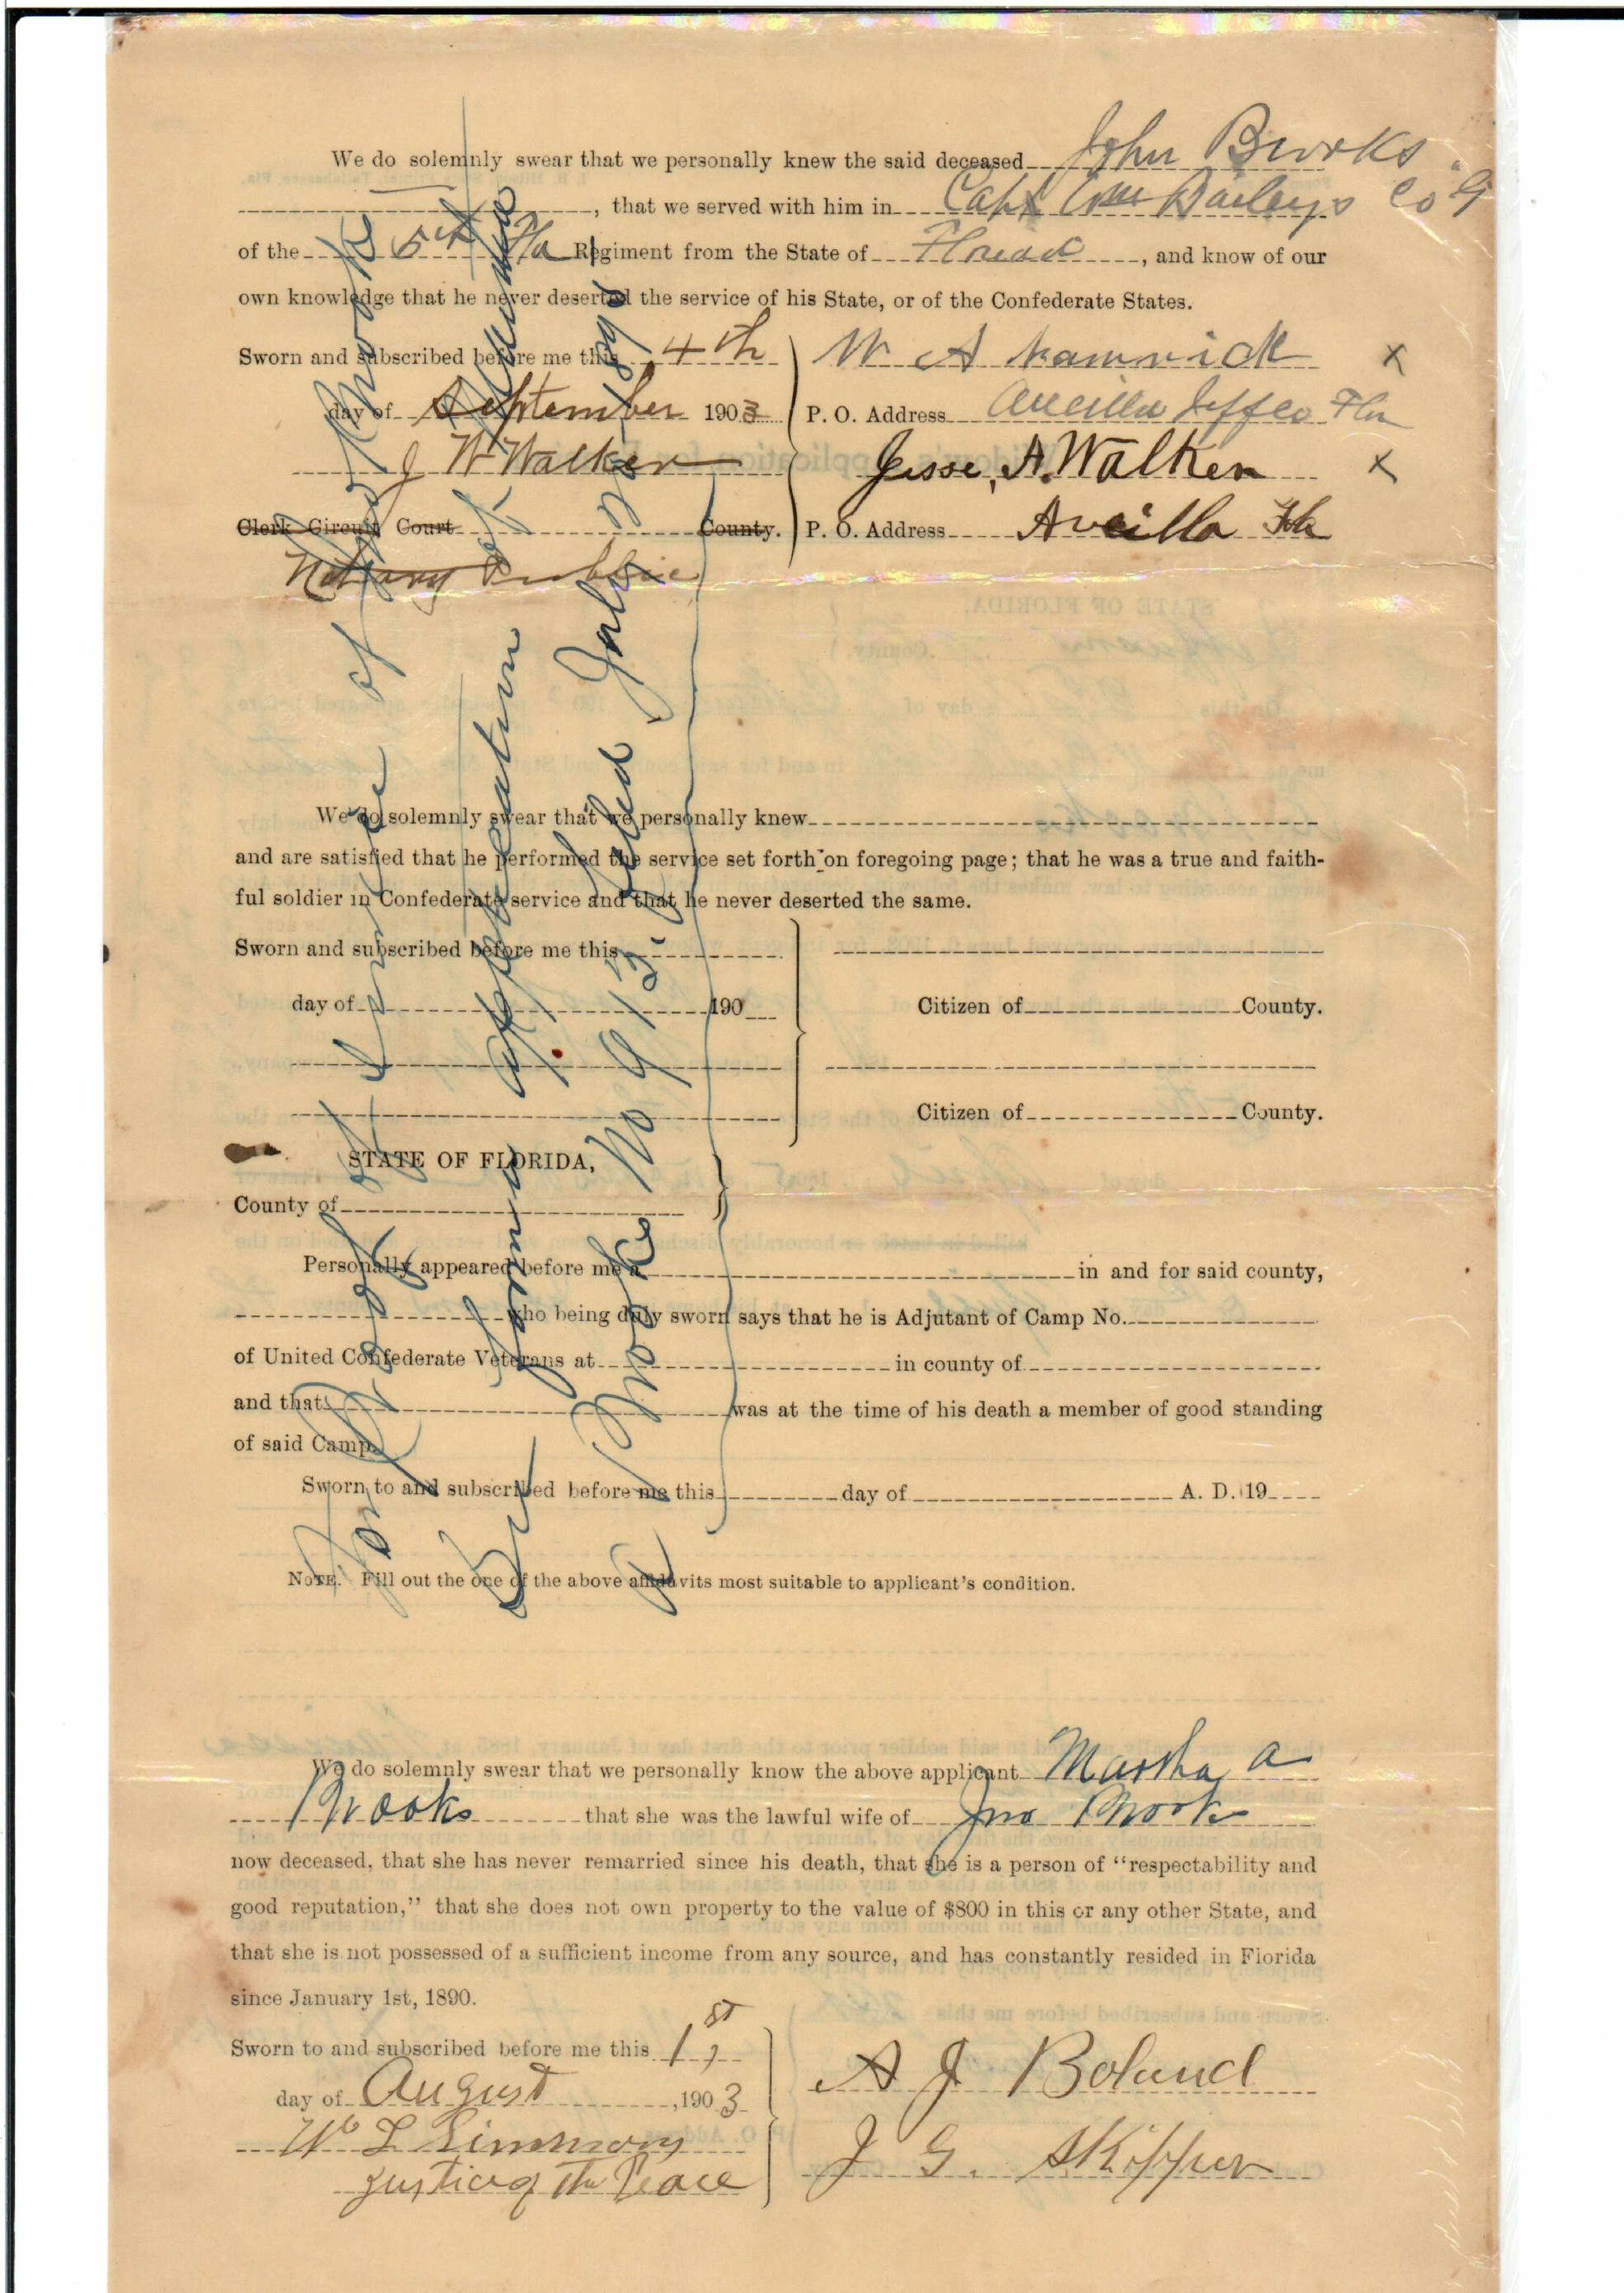 We do solemnly swear that we personally knew the said deceased John Brooks
, that we served with him in Capt Wm Baileys Co "G"
of the 5th Fla Regiment from the State of Florida, and know of our
own knowledge that he never deserted the service of his State, or of the Confederate States.
Sworn and subscribed before me this 4th
day of September 1903
J W Walker
Clerk Circuit Court County.
Notary Public
W A x
P. O. Address Aucilla Jeff co Fla
Jesse, A. Walker x
P. O. Address Aucilla Fla
We do solemnly swear that we personally knew
and are satisfied that he performed the service set forth on foregoing page; that he was a true and faith-
ful soldier in Confederate service and that he never deserted the same.
Sworn and subscribed before me this
day of 190
Citizen of County.
Citizen of County.
STATE OF FLORIDA,
County of
Personally appeared before me a in and for said county,
who being duly sworn says that he is Adjutant of Camp No.
of United Confederate Veterans at in county of
and that was at the time of his death a member of good standing
of said Camp.
Sworn to and subscribed before me this day of A. D. 19
NOTE. Fill out the one of the above affidavits most suitable to applicant's condition.
For Proof of service of Jno Brooks
See former application of
Brooks No 913. filed July
We do solemnly swear that we personally know the above applicant Martha a
Brooks that she was the lawful wife of Jno Brooks
now deceased, that she has never remarried since his death, that she is a person of "respectability and
good reputation," that she does not own property to the value of $800 in this or any other State, and
that she is not possessed of a sufficient income from any source, and has constantly resided in Florida
since January 1st, 1890.
Sworn to and subscribed before me this 1st
day of August, 1903
W L Simmons
Justice of the Peace
A J Boland
J G. Skipper